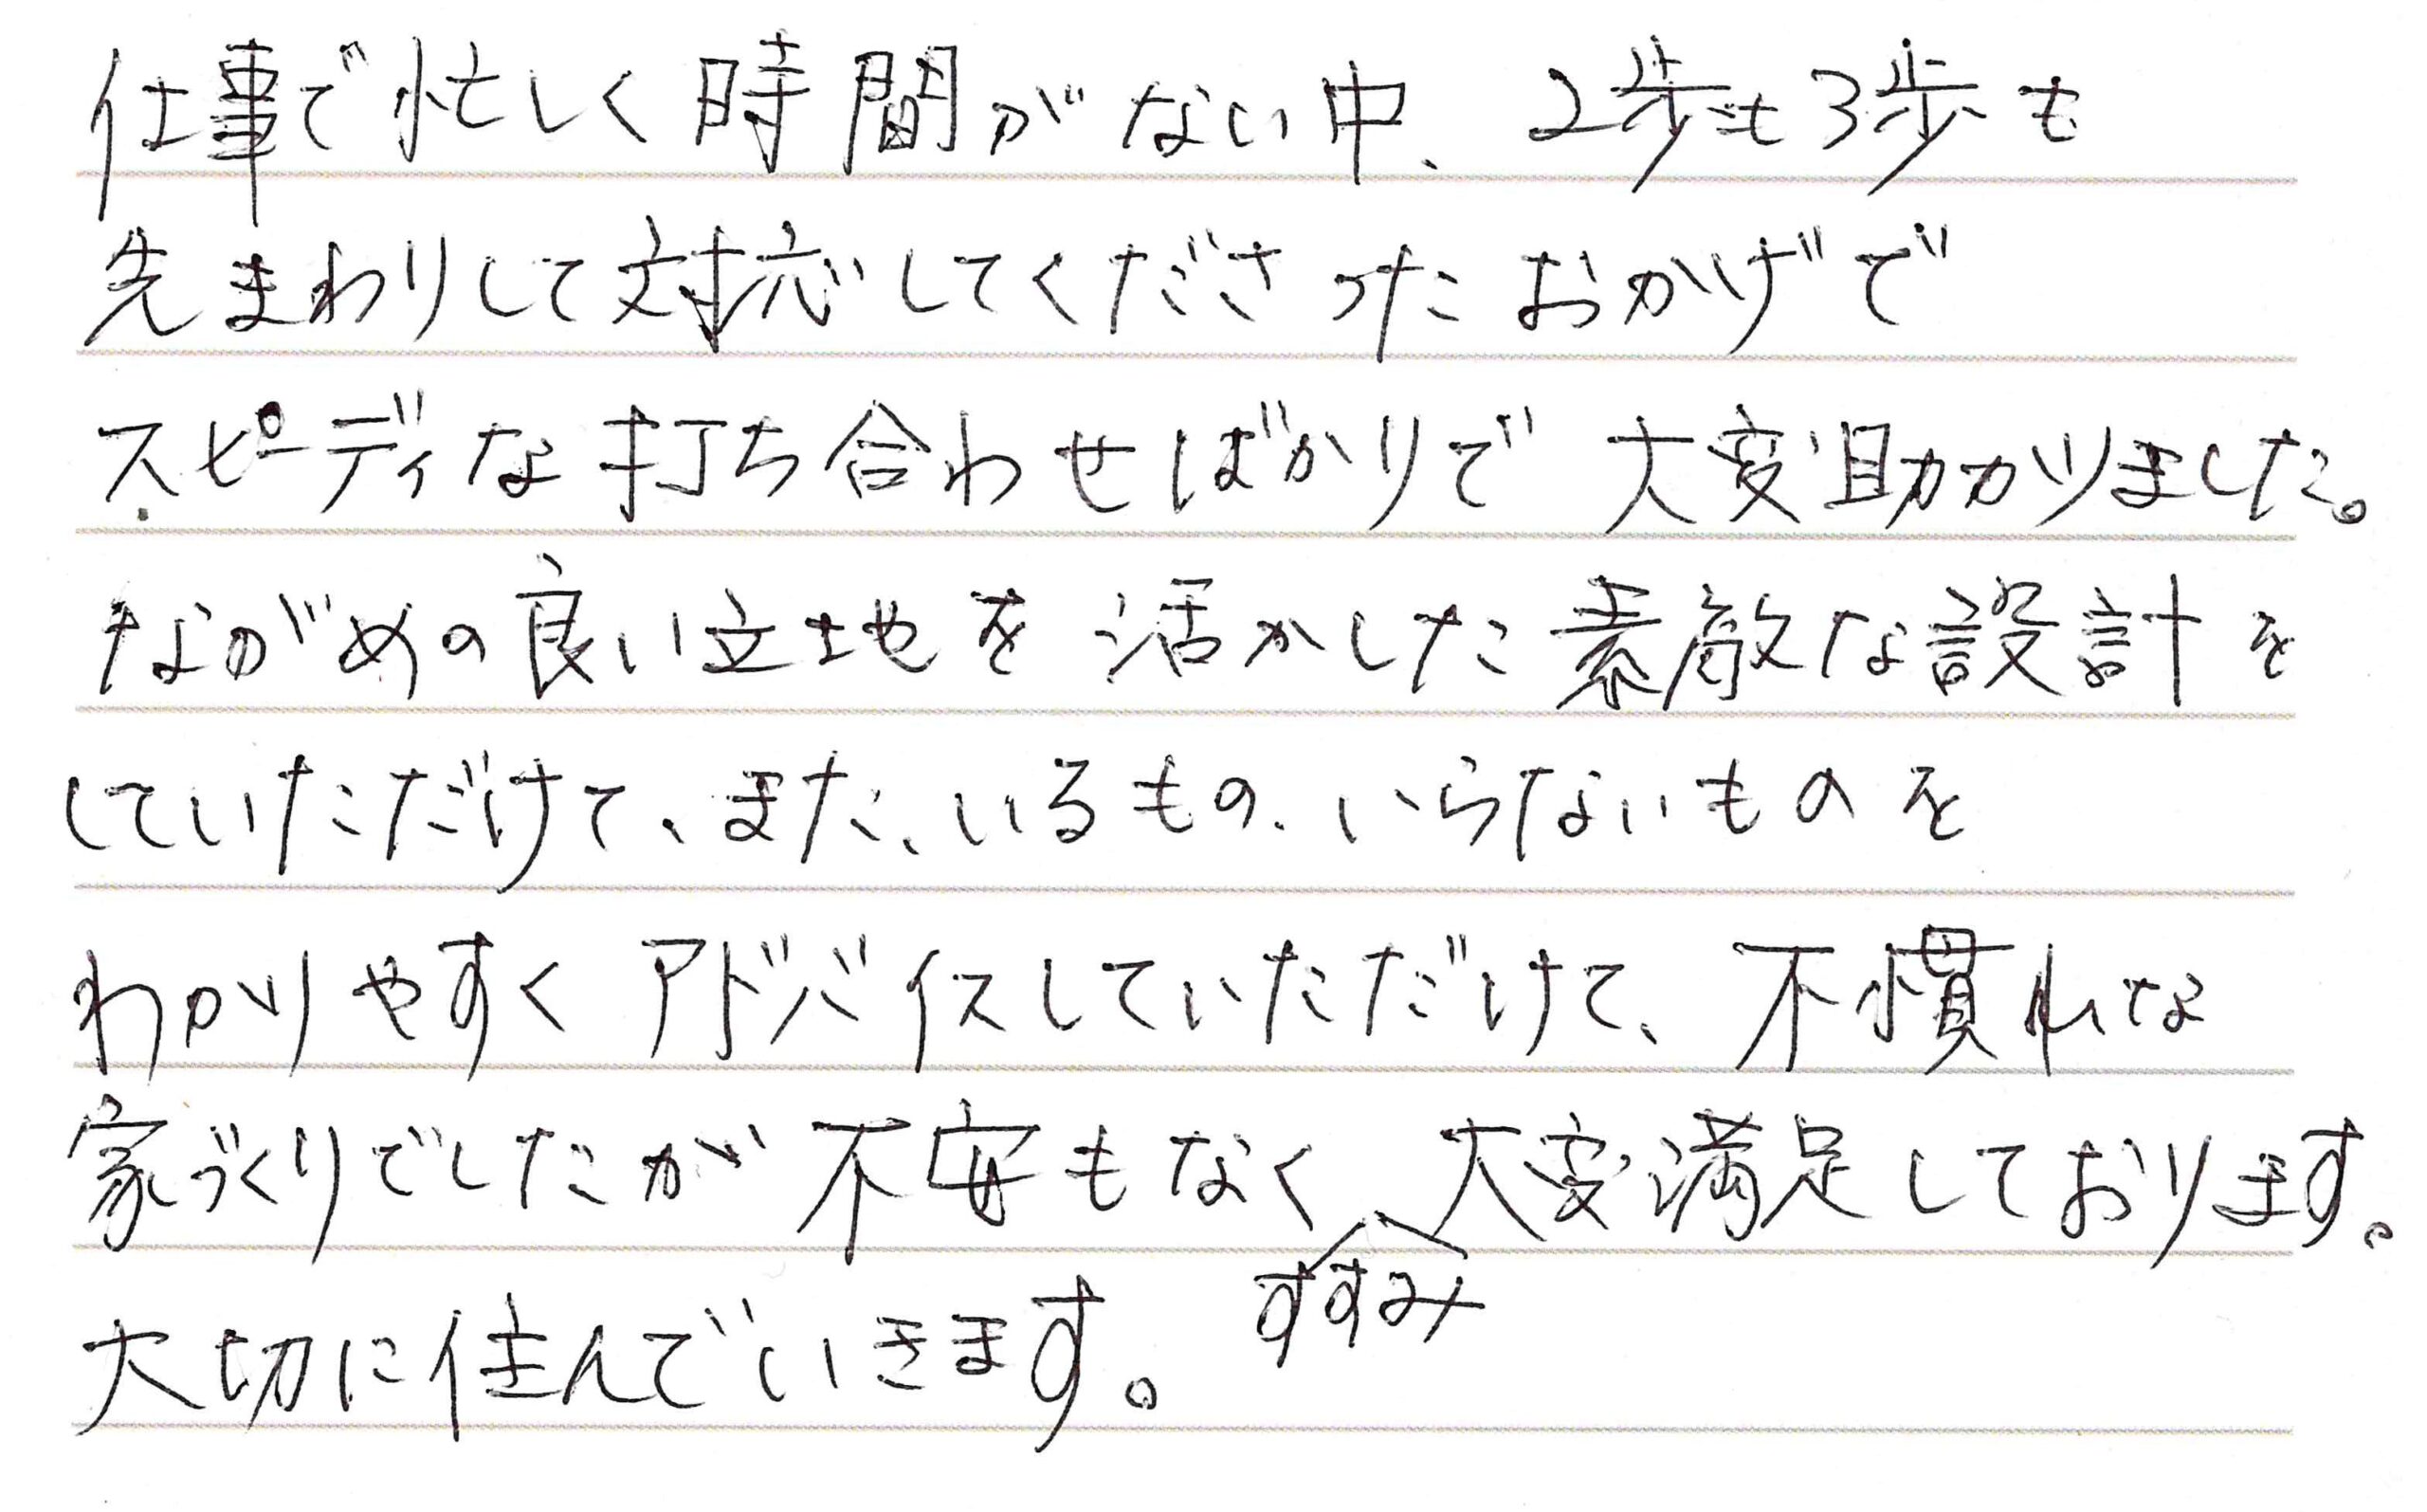 仕事で忙しく時間がない中、2歩も3歩も
先まわりして対応してくださったおかげで
スピーディな打ち合わせばかりで大変助かりました。
ながめの良い立地を活かした素敵な設計を
していただけて、また、いるもの、いらないものを
わかりやすくアドバイスしていただけて、不慣れな
家づくりでしたが不安もなく大変満足しております。
すすみ
大切に住んでいきます。